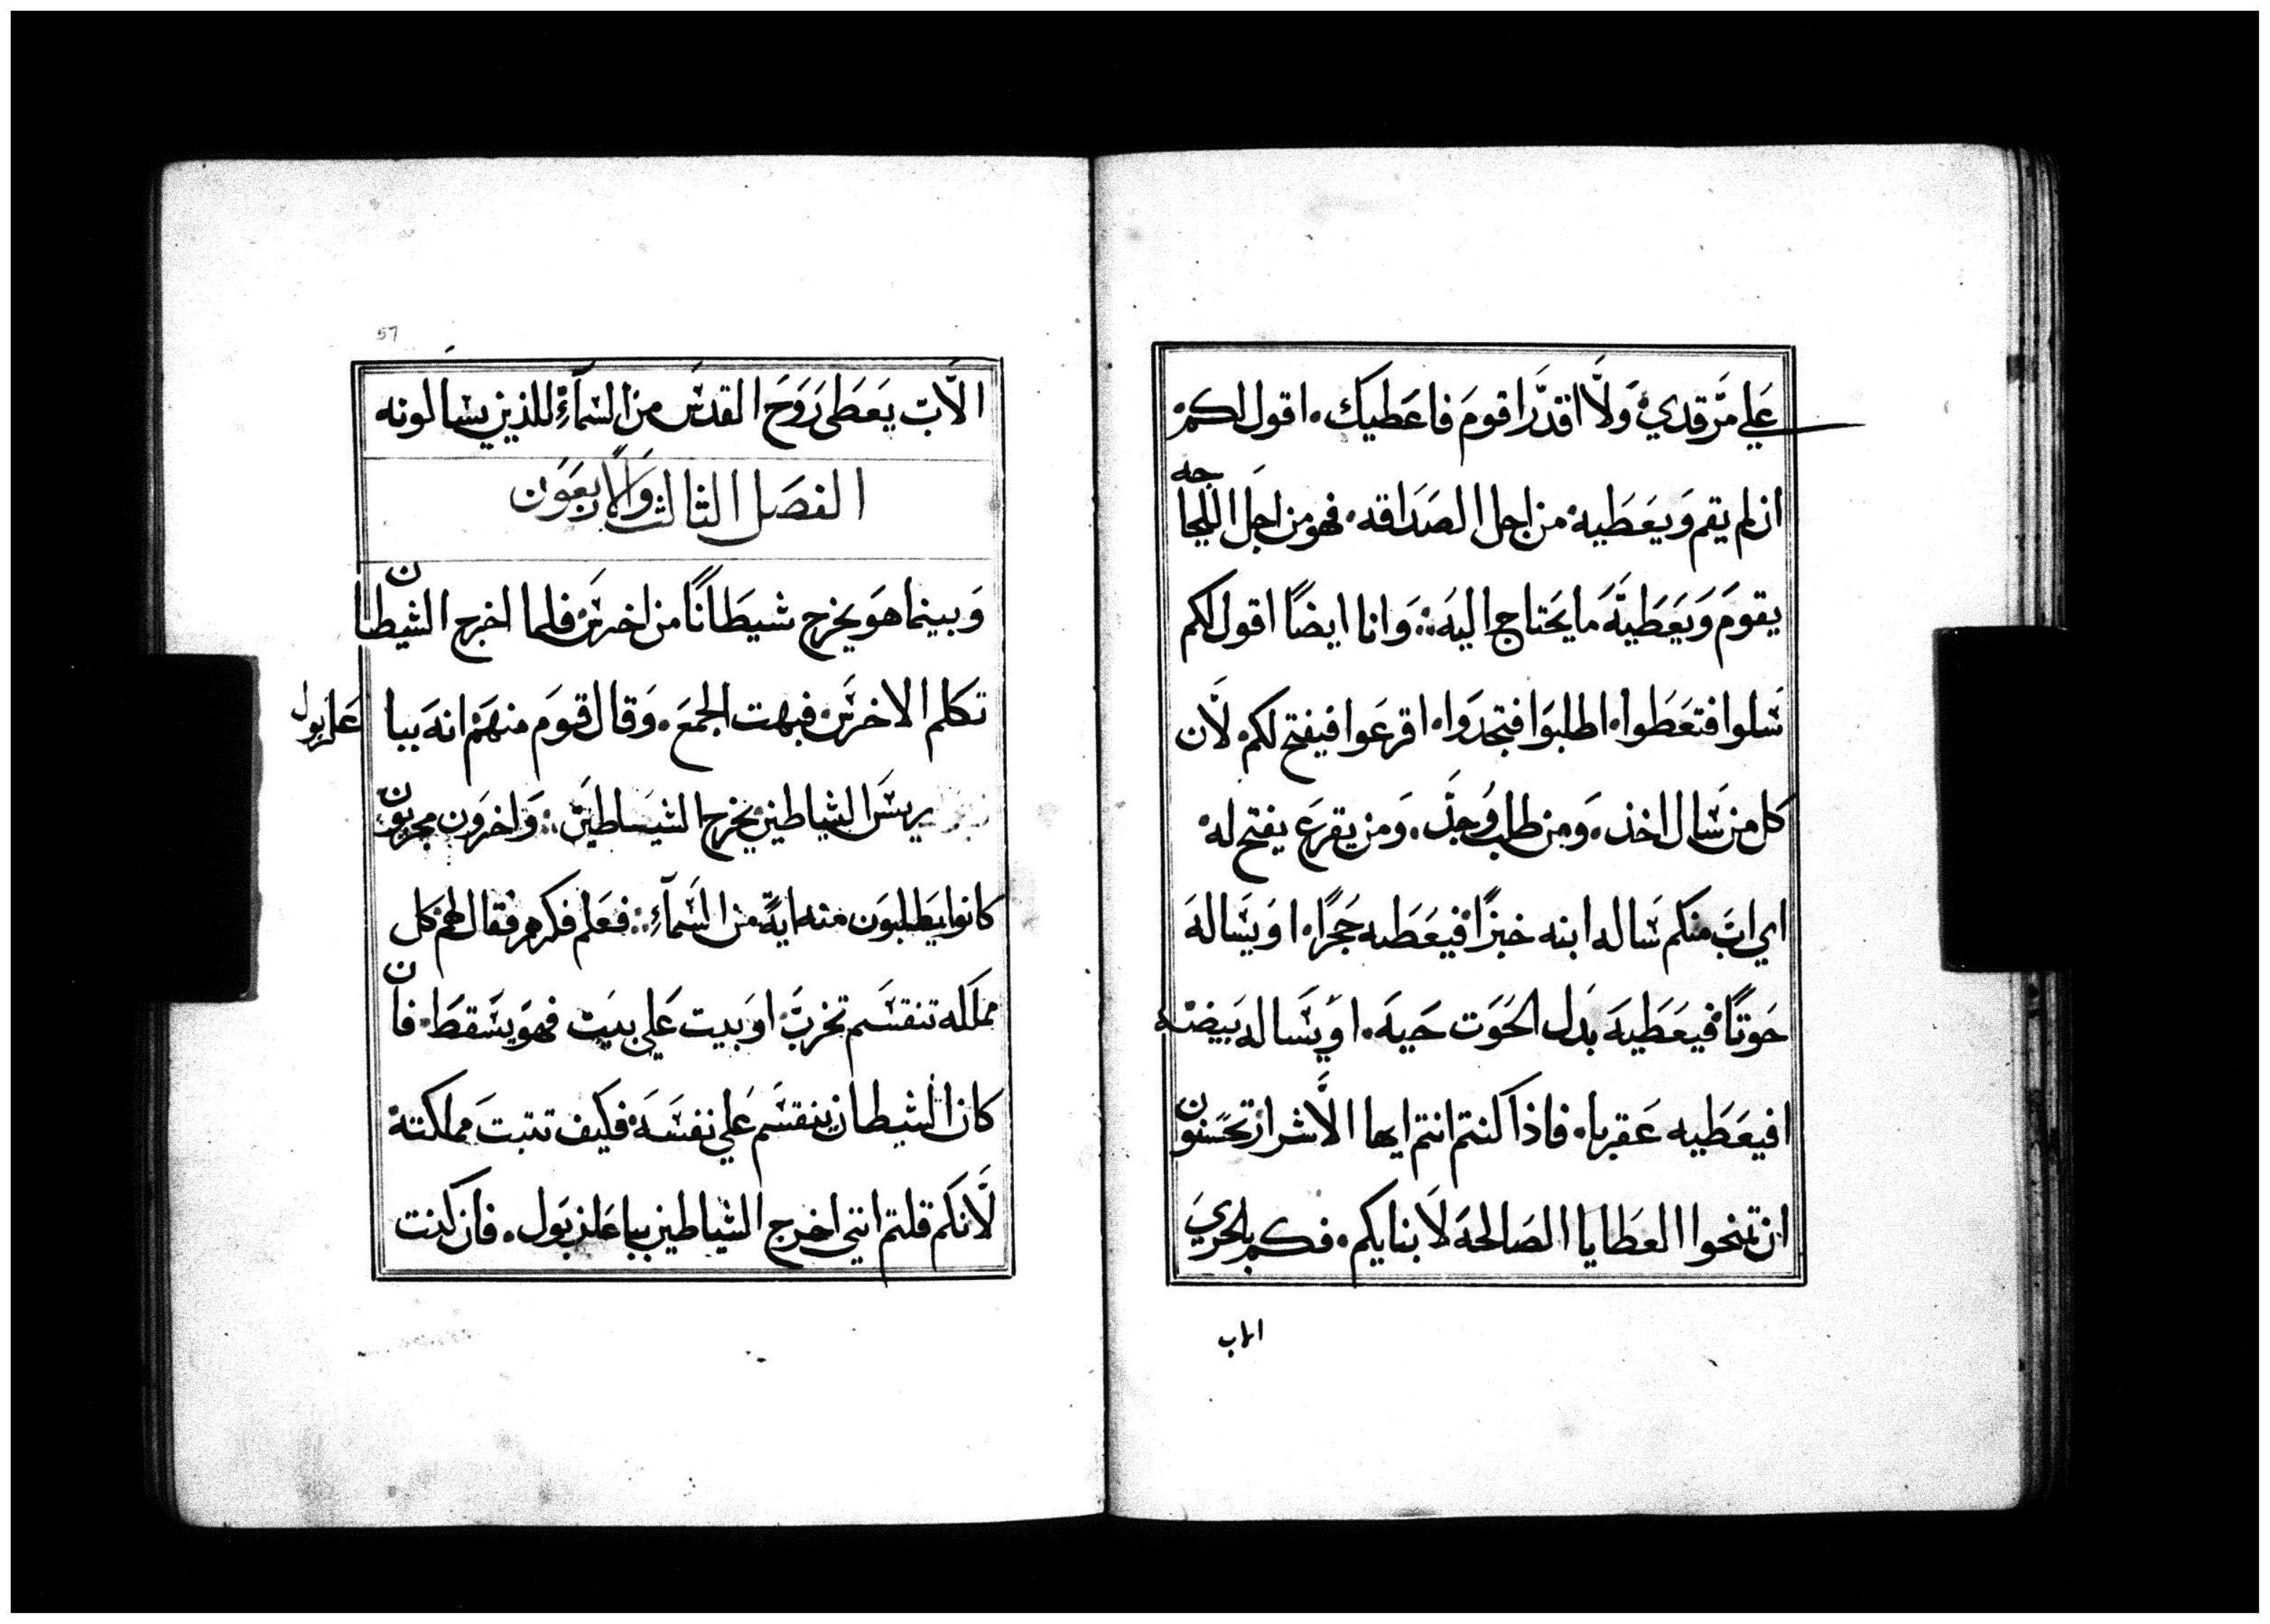 عَلي مَّرقدي وَلاَّ اقدَّر اقومَ فاعَطيك۰ اقول لكم
ان لم يقم وَيعَطيه من اجل الصَدَاقه۰ فهو من اجَل اللجاجه
يقومَ وَيَعَطيَّهَ مَا يَحَتاج اليهَ؞ وَانا ايضًا اقول لكم
سَلوا فتعَطَوا۰ اطلبوَا فتجدَوا۰ اقرعَوا فيفتح لكم۰ لَّان
كل من سَال اخذ۰ وَمن طلب وُجدَّ۰ وَمن يقرعَ يفتح له
اي ابَّ منكم سَاله ابنه خبزًا فيعَطيه حَجَرًا۰ اوَيسَاله
حَوتًا فيعَطيهَ بَدل الحَوَت حَيهَ۰ اوَيسَاله بَيضه
افيعَطيه عَقربا۰ فاذا كنتم انتم ايها الاَّشرار تحَسَنون
ان تمنحوا العَطايا الصَالحهَ لاَبنايكم۰ فكم بالحري
الاب
57
الاَّبّ يعَطى رَوَحَ القدسَ من السَمآءِ للذين يسَالونه
الفصَل الثالث وَالاَربعَوَن
وَبينما هوَ يخرج شيطَانًا من اخرسَ فلما اخرج الشيطان
تكلم الاخرسَ فبهت الجمعَ۰ وَقال قومَ منهمَ انهَ ببا
عَلزبول
ريسَ الشياطين يخرج الشيَاطينَ؞ وَاخروَن مجربون
كانوا يَطلبوَن منه ايةً من السَمآءِ؞ فعَلم فكرهم فقال لهم كل
مملكه تنقسَم تخربَّ اوَبيت عَلي بيَت فهوَ يسَقطَ۰ فان
كان الشيطان ينقسَم عَلي نفسَهَ فكيف تتبتَ مملكته
لَّانكم قلتم انني اخرج الشياطين بباعَلزبَول۰ فان كنت